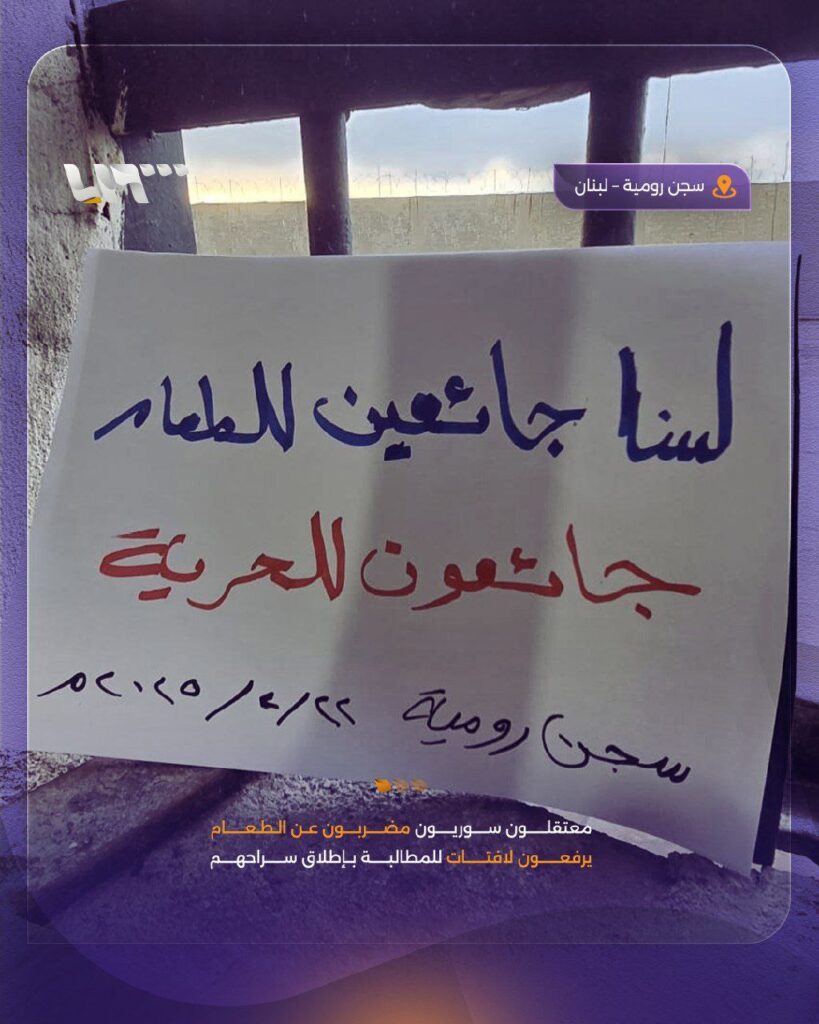 سجن رومية - لبنان
لسنا جائعين للطعام
جائعون للحرية
سجن رومية ٢٢/٤/٢٠٢٥م
معتقلون سوريون مضربون عن الطعام
يرفعون لافتات للمطالبة بإطلاق سراحهم